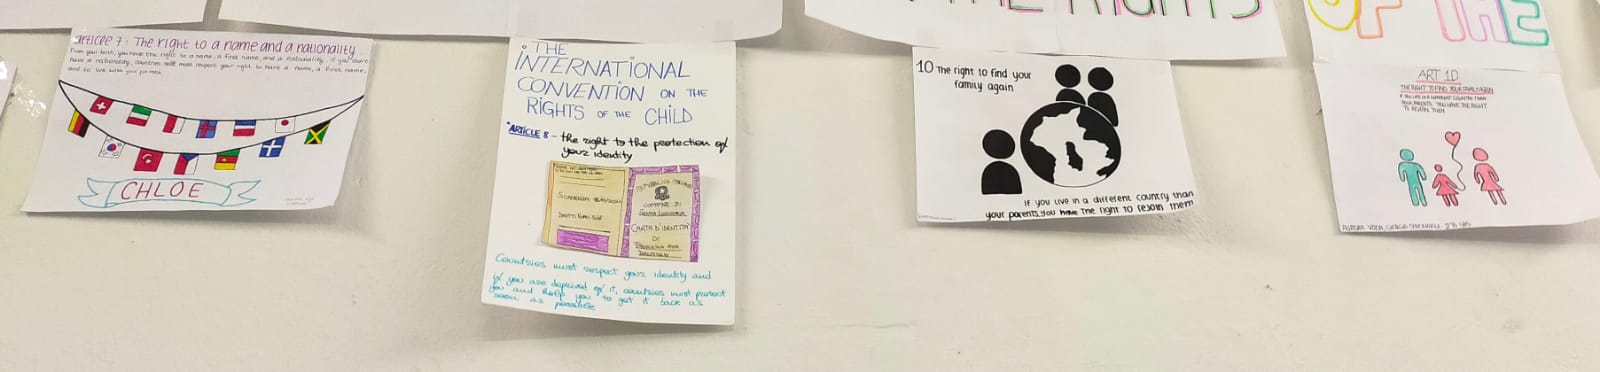 THE RIGHTS
OF THE
article 7: The right to a name and a nationality
From your birth, you have the right to a name, a first name, and a nationality. if you don't
have a nationality, countries still must respect your right to have a name, a first name,
and to live with your
CHLOE
THE
INTERNATIONAL
CONVENTION ON THE
RIGHTS OF THE CHILD
ARTICLE 8 - the right to the protection of
your identity
REPUBBLICA ITALIANA
COMUNE DI
CARTA D'IDENTITÀ
DI
Countries must respect your identity and
if you are deprived of it, countries must protect
you and help you to get it back as
soon as possible
10 The right to find your
family again
If you live in a different country than
your parents, you have the right to rejoin them
ART 10
THE RIGHT TO FIND YOUR FAMILY AGAIN
IF YOU LIVE IN A DIFFERENT COUNTRY THAN
YOUR PARENTS YOU HAVE THE RIGHT
TO REJOIN THEM
AURORA